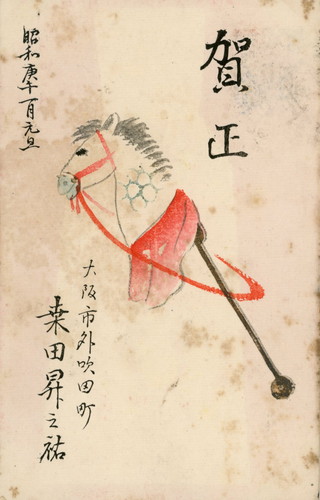 賀正
昭和庚午一月元旦
大阪市外吹田町
桒田昇之祐